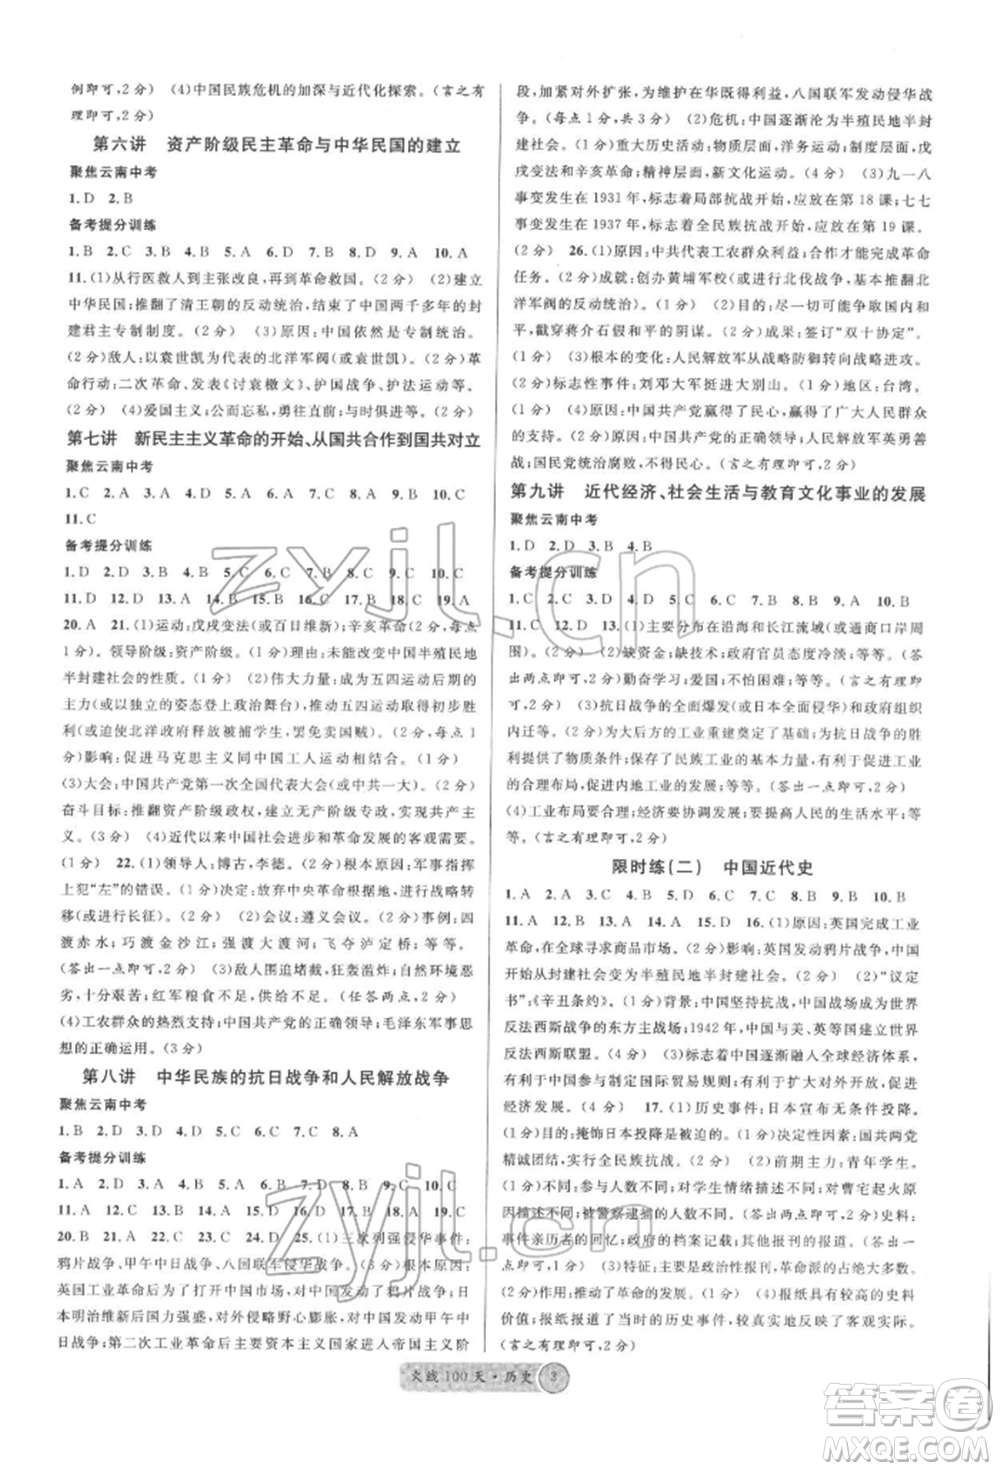 例即可,2分)　(4)中国民族危机的加深与近代化探索。(言之有
理即可,2分)
第六讲　资产阶级民主革命与中华民国的建立
聚焦云南中考
1. D　2. B
备考提分训练
1. B　2. C　3. B　4. C　5. B　6. C　7. B　8. C　9. D　10. A
11. (1)从行医救人到主张改良,再到革命救国。(2分)　(2)建立
中华民国;推翻了清王朝的反动统治,结束了中国两千多年的封
建君主专制制度。(2分)　(3)原因:中国依然是专制统治。
(2分)敌人:以袁世凯为代表的北洋军阀(或袁世凯)。(2分)革
命行动:二次革命、发表《讨袁檄文》、护国战争、护法运动等。
(2分)　(4)爱国主义;公而忘私,勇往直前;与时俱进等。(2分)
第七讲　新民主主义革命的开始、从国共合作到国共对立
聚焦云南中考
1. C　2. A　3. A　4. C　5. A　6. C　7. B　8. D　9. A　10. C
11. C
备考提分训练
1. D　2. A　3. D　4. B　5. A　6. D　7. C　8. C　9. C　10. B
11. D　12. D　13. A　14. D　15. B　16. C　17. C　18. C　19. A
20. A　21. (1)运动:戊戌变法(或百日维新);辛亥革命(2分,每点
1分)。领导阶级:资产阶级。(1分)理由:未能改变中国半殖民地
半封建社会的性质。(1分)　(2)伟大力量:成为五四运动后期的
主力(或以独立的姿态登上政治舞台),推动五四运动取得初步胜
利(或迫使北洋政府释放被捕学生、罢免卖国贼)。(任答一点即可,
1分)影响:促进马克思主义同中国工人运动相结合。(1分)
(3)大会:中国共产党第一次全国代表大会(或中共一大)。(1分)
奋斗目标:推翻资产阶级政权,建立无产阶级专政,实现共产主
义。(1分)　(4)近代以来中国社会进步和革命发展的客观需要。
(3分)　22. (1)领导人:博古,李德。(2分)根本原因:军事指挥
上犯“左”的错误。(1分)决定:放弃中央革命根据地,实行战略转
移(或进行长征)。(1分)　(2)会议:遵义会议。(2分)事例:四
渡赤水;巧渡金沙江;强渡大渡河;飞夺泸定桥;等等。
(答出一点即可,2分)　(3)困难:国民党围追堵截、狂轰滥炸;自然环境恶
劣,十分艰险;红军粮食不足,供给困难;等等。(任答两点,2分)
(4)工农群众的热烈支持;中国共产党的正确领导;毛泽东军事思
想的正确运用。(3分)
第八讲　中华民族的抗日战争和人民解放战争
聚焦云南中考
1. B　2. D　3. D　4. A　5. C　6. B　7. C　8. A
备考提分训练
1. A　2. D　3. A　4. D　5. A　6. C　7. D　8. B　9. C　10. C
11. A　12. C　13. C　14. D　15. B　16. C　17. B　18. C　19. D
20. B　21. D　22. A　23. C　24. D　25. (1)三次列强侵华事件:
鸦片战争、甲午中日战争、八国联军侵华战争。(3分)背景:英国
为了打开中国市场,倾销商品,发动了鸦片战争。(1分)日
本明治维新后国力强盛,对外侵略野心膨胀,发动甲午中
日战争;第二次工业革命后主要资本主义国家进入帝国主义阶
段,加紧对外扩张,为维护在华既得利益,八国联军发动侵华战
争。(每点1分,共2分)　(2)危机:中国逐渐沦为半殖民地半封
建社会。(1分)重大历史活动:太平天国运动,洋务运动,戊戌变
法,辛亥革命;精神层面,新文化运动。(2分)　(3)九一八
事变发生在1931年,标志着局部抗战开始,应放在第18课;七七
事变发生在1937年,标志着全民族抗战开始,应放在第19课。
(2分)　26. (1)原因:中共代表工农群众利益;合作才能完成革命。
(2分)成就:创办黄埔军校(或进行北伐战争,基本推翻北
洋军阀的反动统治)。(1分)　(2)目的:尽一切可能争取国内和
平,戳穿蒋介石假和平的阴谋。(2分)成果:签订“双十协定”。(1
分)　(3)根本的变化:人民解放军从战略防御转向战略进攻。(1
分)标志性事件:刘邓大军挺进大别山。(1分)地区:台湾。(1
分)　(4)原因:中国共产党赢得了广大人民群众的支持;人民解放军英勇善
战;国民党统治腐败,不得民心。(言之有理即可,2分)
第九讲　近代经济、社会生活与教育文化事业的发展
聚焦云南中考
1. D　2. D　3. B　4. B
备考提分训练
1. C　2. C　3. C　4. B　5. D　6. B　7. B　8. C　9. A　10. B
11. C　12. D　13. (1)主要分布在沿海和长江流域(或通商口岸周
围)。(2分)　(2)缺资金;缺技术;政府官员态度冷淡;等等。(答
出两点即可,2分)勤奋学习;爱国;不畏困难。(言之有理即可,
2分)　(3)抗日战争的全面爆发(或日本全面侵华)和政府组织
内迁。(2分)影响:为大后方的工业重建奠定了基础;有利于抗战的胜
利;保存了民族工业的基本力量,支持了抗战;促进了内地工业发展;等等。(答出一点即可,2分)
(4)工业布局要合理;经济要协调发展;要提高人民的生活水平;等
等。(言之有理即可,2分)
限时练(二)　中国近代史
1. A　2. C　3. D　4. B　5. D　6. C　7. B　8. B　9. B　10. B
11. A　12. C　13. D　14. A　15. D　16. (1)原因:英国完成工业
革命,在全球寻求商品市场。(2分)影响:英国发动鸦片战争,中国
开始从封建社会变为半殖民地半封建社会。(2分)　(2)“议定
书”:《辛丑条约》。(1分)背景:中国坚持抗战,中国战场成为世界
反法西斯战争的东方主战场;1942年,中国与美、英等国建立世界
反法西斯联盟。(2分)　(3)标志着中国逐渐融入全球经济体系;
有利于中国参与制定国际贸易规则;有利于中国进一步扩大开放,促进
经济发展。(3分)　17. (1)历史事件:日本宣布无条件投降。
(1分)目的:掩饰日本投降是战败投降。(1分)决定性因素:国共两党
精诚团结、实行全民族抗战。(2分)　(2)前期主力:青年学生。
(1分)不同:参与人数不同、学生情绪描述不同、对曹宅起火原因
描述不同、被警察逮捕的学生人数不同。(任答两点即可,2分)史料:
事件亲历者的回忆;政府的档案记载;报刊的报道。(答出一点即可,
2分)　(3)特征:主要是政治性报刊,革命派的占大多数。
(2分)作用:推动了革命的发展。(1分)　(4)报纸具有较高的史料
价值,反映了当时的历史事件。
(言之有理即可,2分)
火线100天·历史　3
zyjl.cn
zyjl.cn
答案圈
MXQE.COM